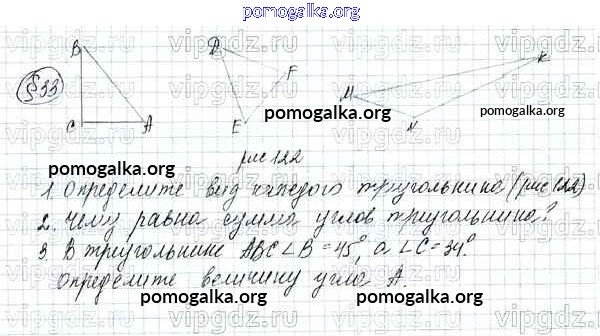 pomogalka.org
§33
B
C
A
D
F
E
M
N
K
pomogalka.org
pomogalka.org
pomogalka.org
рис 122
1. Определите вид каждого треугольника (рис 122)
2. Чему равна сумма углов треугольника?
3. В треугольнике ABC ∠B = 45°, а ∠C = 34°.
Определите величину угла A.
pomogalka.org
pomogalka.org
vipgdz.ru